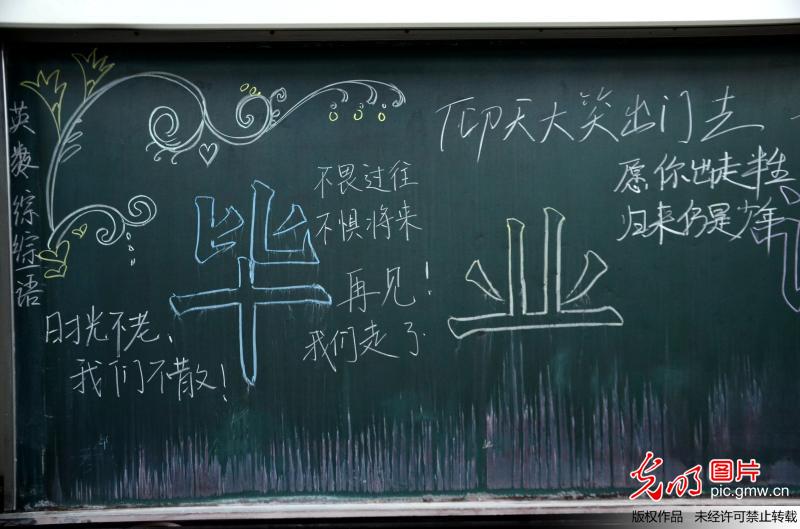 英数综综语
仰天大笑出门去
愿你出走半生
归来仍是少年
不畏过往
不惧将来
再见！
我们走了
毕业
时光不老、
我们不散！
光明图片
pic.gmw.cn
版权作品 未经许可禁止转载